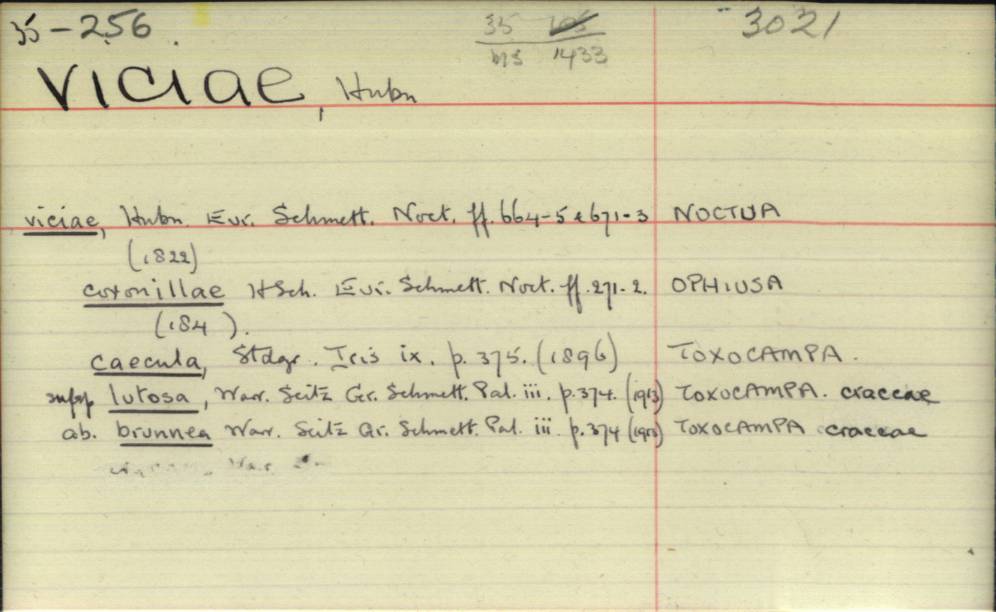 35-256. 35 105 3021
M3 1433
VICIAE, Hubn
viciae, Hubn. Eur. Schmett. Noct. ff. 664-5 & 671-3 NOCTUA
(1822)
coronillae HSch. Eur. Schmett. Noct. ff. 271-2. OPHIUSA
(184 ).
caecula, Stdgr. Iris ix. p. 375. (1896) TOXOCAMPA.
subsp lutosa, Warr. Seitz Gr. Schmett. Pal. iii. p. 374. (1913) TOXOCAMPA. craccae
ab. brunnea Warr. Seitz Gr. Schmett. Pal. iii. p. 374 (1913) TOXOCAMPA craccae